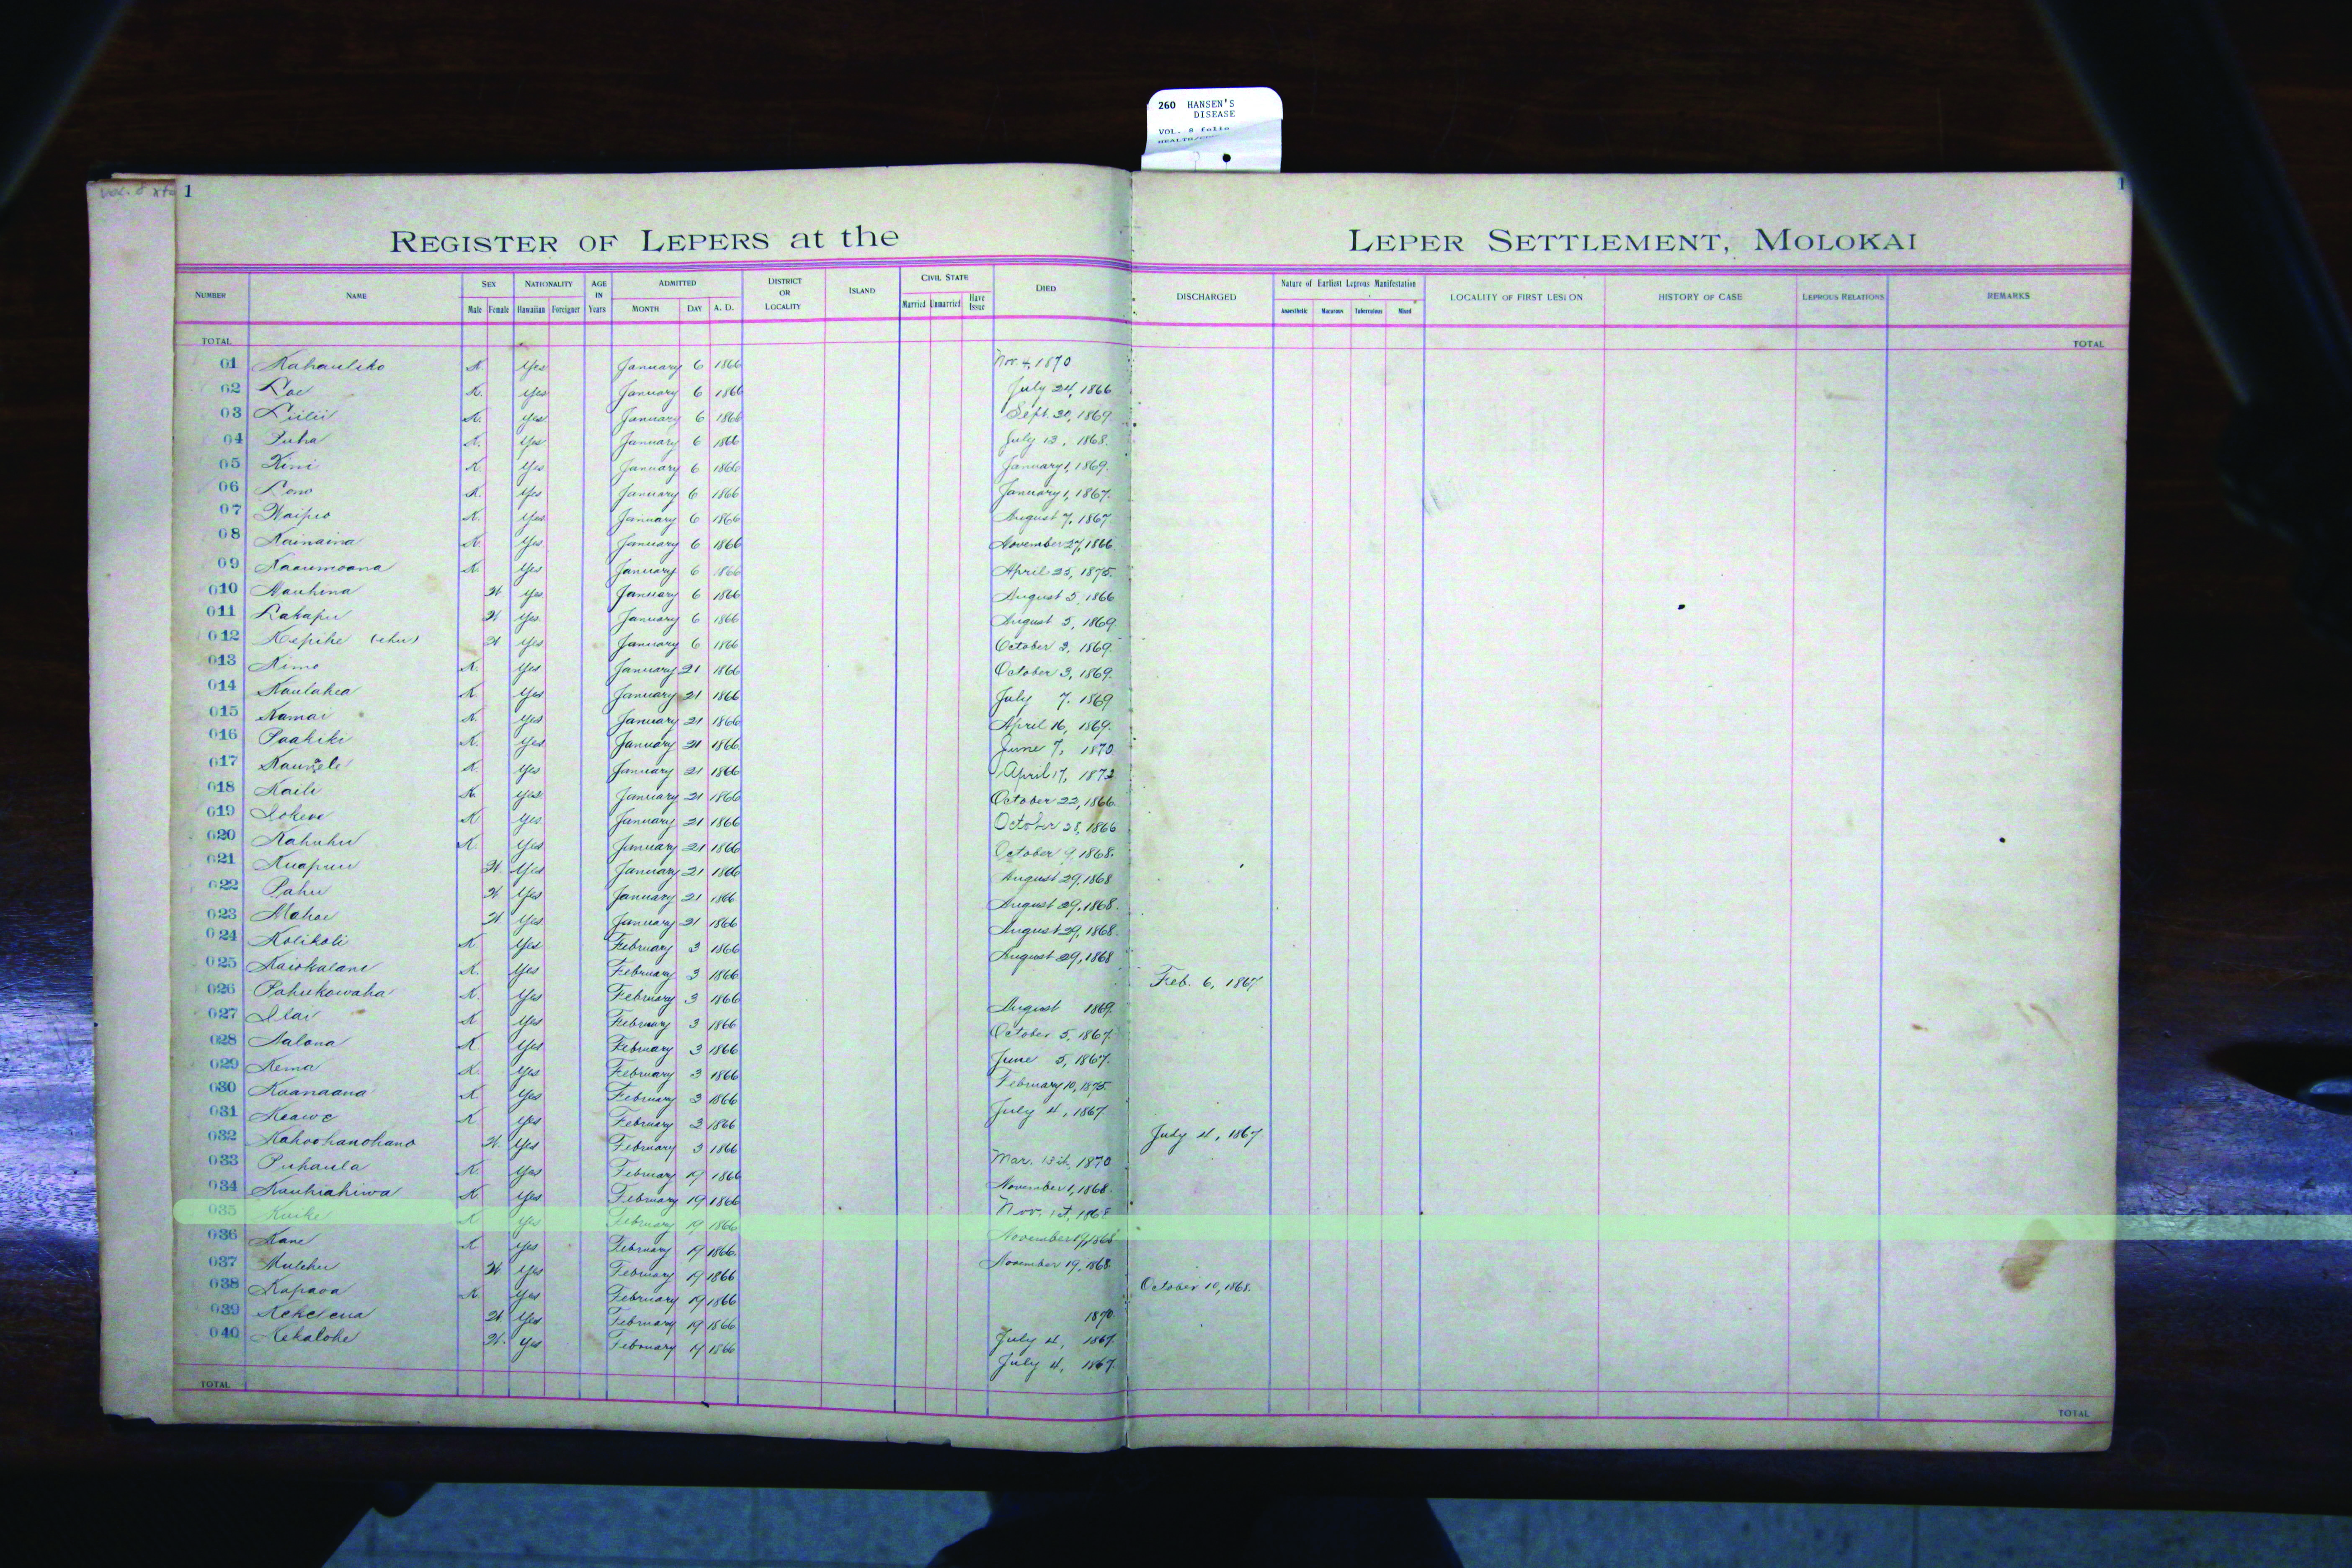 260 HANSEN'S
DISEASE
VOL. 8 folio
1
1
REGISTER OF LEPERS at the LEPER SETTLEMENT, MOLOKAI
NUMBER NAME SEX Male Female NATIONALITY Hawaiian Foreigner AGE IN Years ADMITTED MONTH DAY A. D. DISTRICT OR LOCALITY ISLAND CIVIL STATE Married Unmarried Have Issue DIED DISCHARGED Nature of Earliest Leprous Manifestation Anaesthetic Macurous Tuberculous Mixed LOCALITY OF FIRST LESION HISTORY OF CASE LEPROUS RELATIONS REMARKS
TOTAL TOTAL
01 Kahauliko K. Yes January 6 1866 Nov. 4, 1870
02 Loe K. Yes January 6 1866 July 24, 1866
03 Liilii K. Yes January 6 1866 Sept. 20, 1869
04 Puha K. Yes January 6 1866 July 13, 1868
05 Kini K. Yes January 6 1866 January 1, 1869.
06 Lono K. Yes January 6 1866 January 1, 1867.
07 Waipio K. Yes January 6 1866 August 7, 1867
08 Kainaina K. Yes January 6 1866 November 27, 1866
09 Kaaumoana K. Yes January 6 1866 April 25, 1875.
010 Mauhina W Yes January 6 1866 August 5, 1866
011 Lakapu W Yes January 6 1866 August 5, 1869
012 Kepihe (ehu) W Yes January 6 1866 October 3, 1869.
013 Kimo K. Yes January 21 1866 October 3, 1869.
014 Kaulahea K Yes January 21 1866 July 7. 1869
015 Kamai K. Yes January 21 1866 April 16, 1869.
016 Paakiki K. Yes January 21 1866 June 7, 1870
017 K. Yes January 21 1866 April 17, 1872
018 Kaili K. Yes January 21 1866 October 22, 1866.
019 Iokewe K Yes January 21 1866 October 28, 1866
020 Kahuhu K. Yes January 21 1866 October 9, 1868.
021 Kuapuu W. Yes January 21 1866 August 29, 1868
022 Pahu W Yes January 21 1866 August 29, 1868.
023 Mahoe W Yes January 21 1866 August 29, 1868.
024 Kolikoli K Yes February 3 1866 August 29, 1868
025 Kaiokalani K. Yes February 3 1866 Feb. 6, 1867
026 Pahukowaha K. Yes February 3 1866 August 1869.
027 Ilai K Yes February 3 1866 October 5, 1867.
028 Kalona K Yes February 3 1866 June 5, 1867.
029 Kema K. Yes February 3 1866 February 10, 1875.
030 Kaanaana K Yes February 3 1866 July 4, 1867
031 Keawe K. Yes February 3 1866 July 4, 1867
032 Kahoohanohano W. Yes February 3 1866 Mar. 1870
033 Puhaula K Yes February 19 1866 November 1, 1868.
034 Kauhiahiwa K Yes February 19 1866 Nov. 1868
035 K Yes February 19 1866 November 1868
036 Kane K Yes February 19 1866. November 19, 1868
037 Muleihu W. Yes February 19 1866 October 10, 1868.
038 Kapaoa K. Yes February 19 1866 1870
039 Kekelena W Yes February 19 1866 July 4, 1867.
040 Kekalohe W. Yes February 19 1866 July 4, 1867.
TOTAL TOTAL